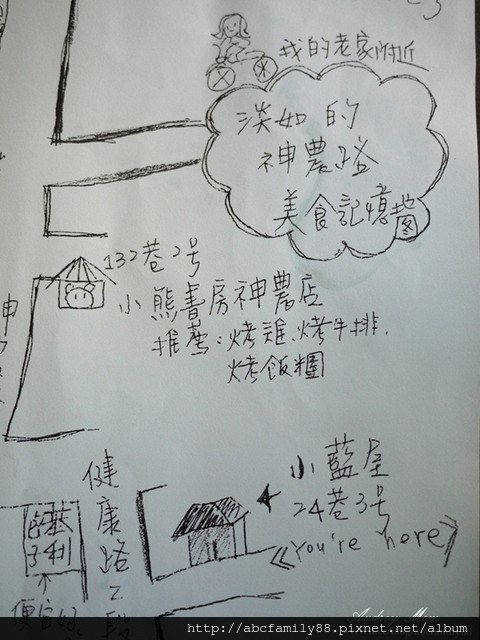 我的老家附近
淡如的
神農路
美食記憶地图
132巷2号
小熊書房神農店
推薦:烤雞、烤牛排、
烤飯糰
健康路2段
小藍屋
24巷3号
《You're here》
http://abcfamily88.pixnet.net/album